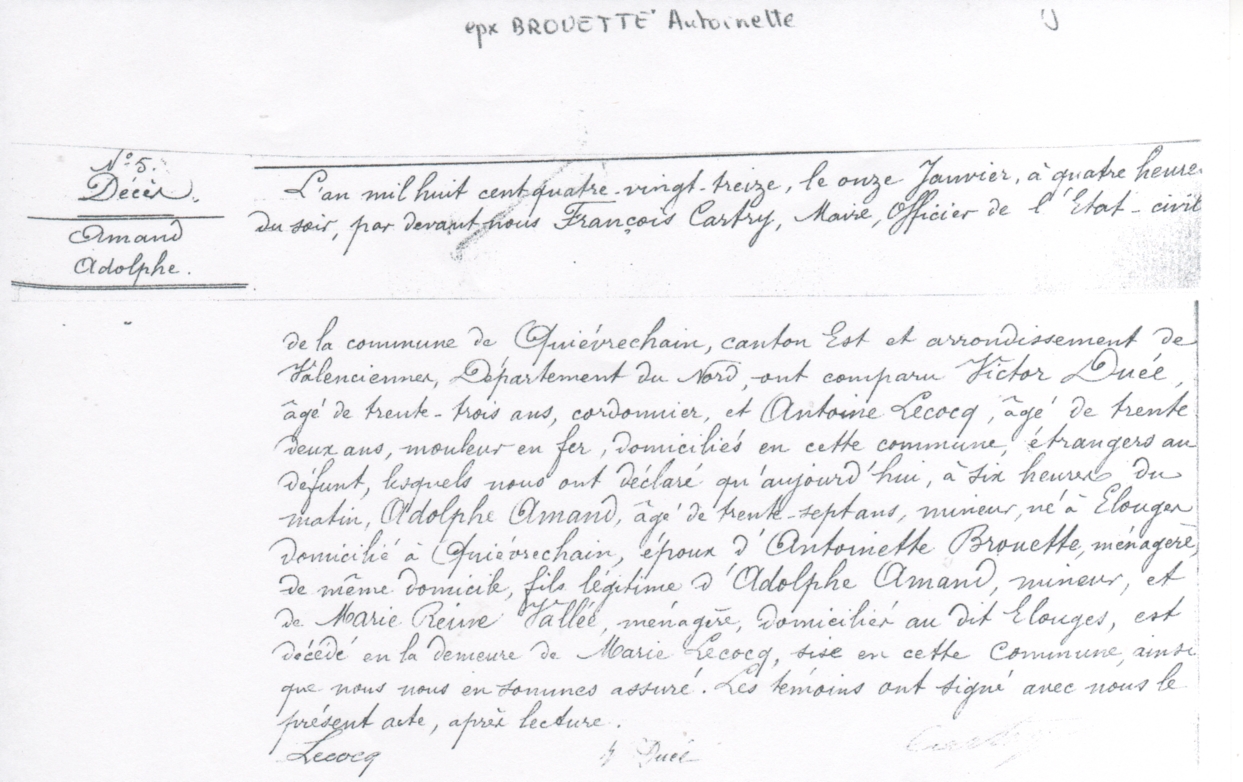 epx BROUETTE Antoinette
N° 5.
Décès.
Amand
Adolphe.
L'an mil huit cent quatre-vingt-treize, le onze Janvier, à quatre heures
du soir, par devant nous François Cartry, Maire, Officier de l'Etat-civil
de la commune de Quiévrechain, canton Est et arrondissement de
Valenciennes, Département du Nord, ont comparu Victor Ducé,
âgé de trente-trois ans, cordonnier, et Antoine Lecocq, âgé de trente
deux ans, mouleur en fer, domiciliés en cette commune, étrangers au
défunt, lesquels nous ont déclaré qu'aujourd'hui, à six heures du
matin, Adolphe Amand, âgé de trente-sept ans, mineur, né à Elouges
domicilié à Quiévrechain, époux d'Antoinette Brouette, ménagère,
de même domicile, fils légitime d'Adolphe Amand, mineur, et
de Marie Reine Vallée, ménagère, domiciliés au dit Elouges, est
décédé en la demeure de Marie Lecocq, sise en cette Commune, ainsi
que nous nous en sommes assuré. Les témoins ont signé avec nous le
présent acte, après lecture.
Lecocq Ducé